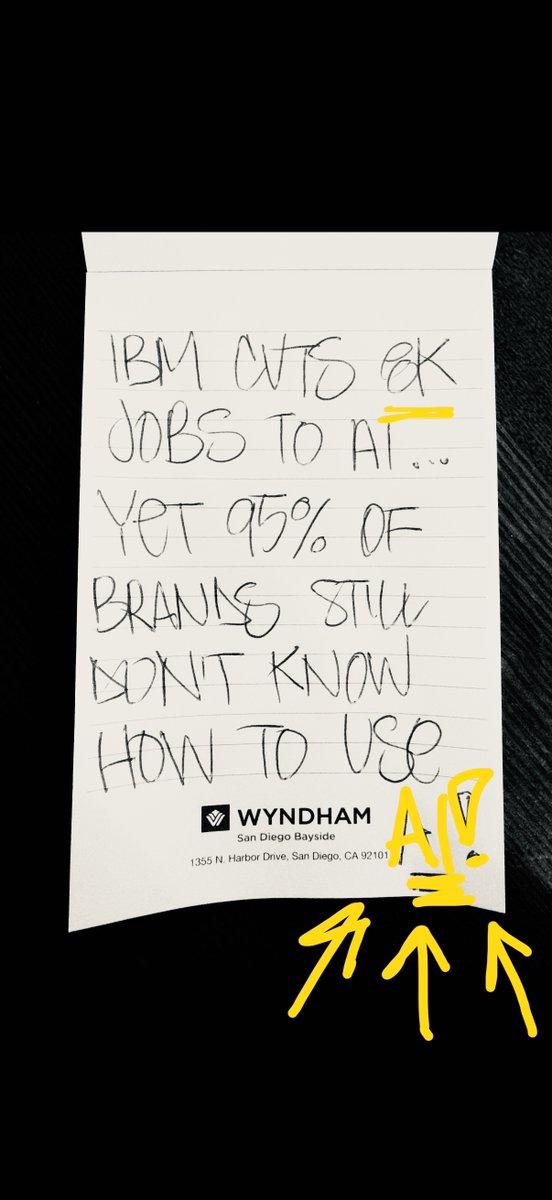 IBM CUTS 8K
JOBS TO AI...
YET 95% OF
BRANDS STILL
DON'T KNOW
HOW TO USE
AI!
WYNDHAM
San Diego Bayside
1355 N. Harbor Drive, San Diego, CA 92101